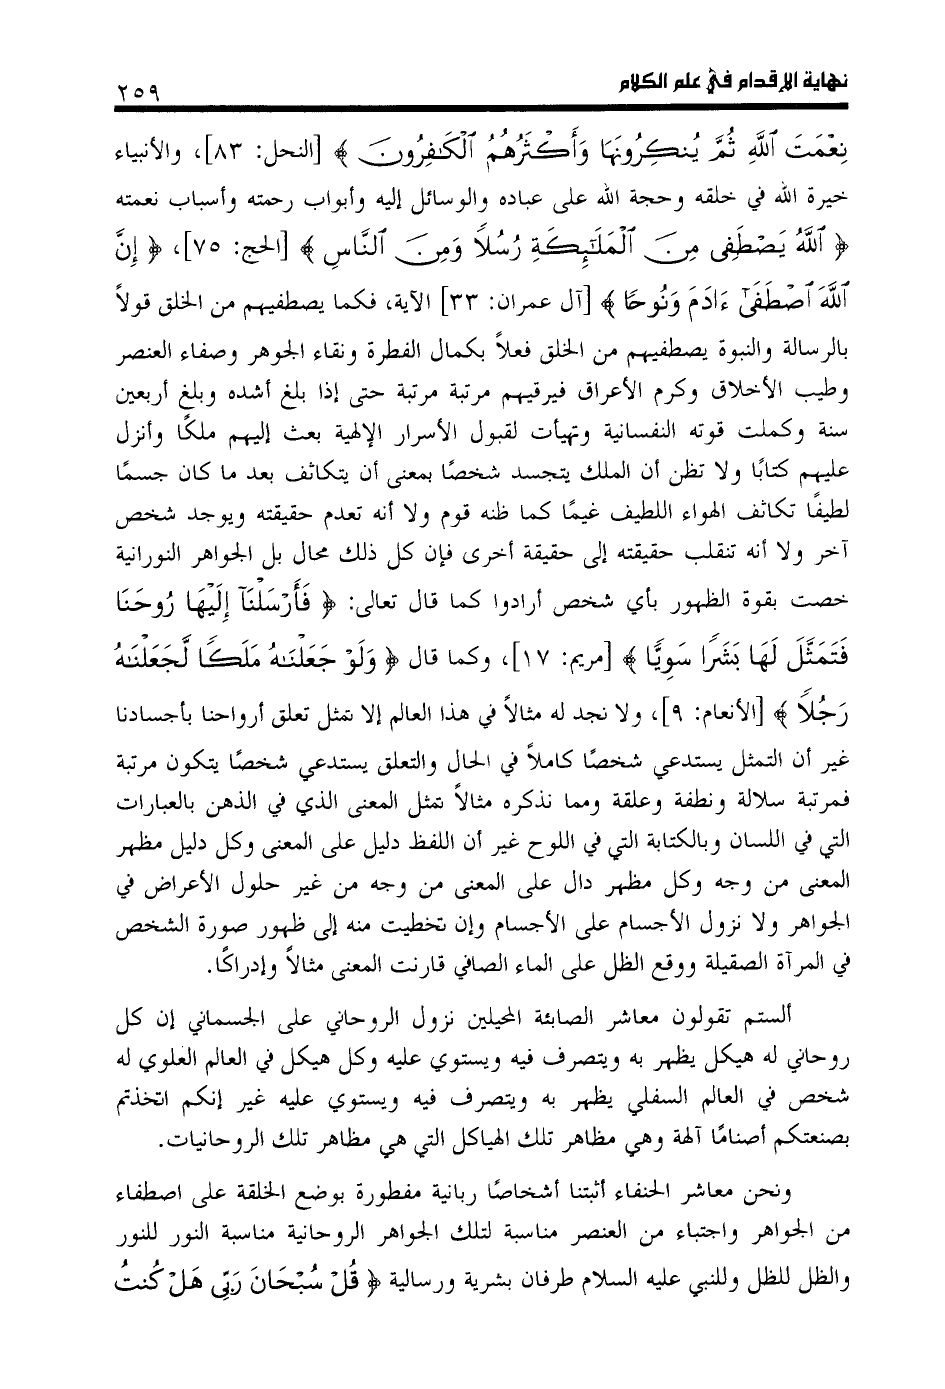 نهاية الإقدام في علم الكلام ٢٥٩
نِعْمَتَ ٱللَّهِ ثُمَّ يُنكِرُونَهَا وَأَكْثَرُهُمُ ٱلْكَٰفِرُونَ ﴾ [النحل: ٨٣]، والأنبياء
خيرة الله في خلقه وحجة الله على عباده والوسائل إليه وأبواب رحمته وأسباب نعمته
﴿ ٱللَّهُ يَصْطَفِى مِنَ ٱلْمَلَٰٓئِكَةِ رُسُلًا وَمِنَ ٱلنَّاسِ ﴾ [الحج: ٧٥]، ﴿ إِنَّ
ٱللَّهَ ٱصْطَفَىٰٓ ءَادَمَ وَنُوحًا ﴾ [آل عمران: ٣٣] الآية، فكما يصطفيهم من الخلق قولاً
بالرسالة والنبوة يصطفيهم من الخلق فعلاً بكمال الفطرة ونقاء الجوهر وصفاء العنصر
وطيب الأخلاق وكرم الأعراق فيرقيهم مرتبة مرتبة حتى إذا بلغ أشده وبلغ أربعين
سنة وكملت قوته النفسانية وتهيأت لقبول الأسرار الإلهية بعث إليهم ملكًا وأنزل
عليهم كتابًا ولا تظن أن الملك يتجسد شخصًا بمعنى أن يتكاثف بعد ما كان جسمًا
لطيفًا تكاثف الهواء اللطيف غيمًا كما ظنه قوم ولا أنه تعدم حقيقته ويوجد شخص
آخر ولا أنه تنقلب حقيقته إلى حقيقة أخرى فإن كل ذلك محال بل الجواهر النورانية
خصت بقوة الظهور بأي شخص أرادوا كما قال تعالى: ﴿ فَأَرْسَلْنَآ إِلَيْهَا رُوحَنَا
فَتَمَثَّلَ لَهَا بَشَرًا سَوِيًّا ﴾ [مريم: ١٧]، وكما قال ﴿ وَلَوْ جَعَلْنَٰهُ مَلَكًا لَّجَعَلْنَٰهُ
رَجُلًا ﴾ [الأنعام: ٩]، ولا نجد له مثالاً في هذا العالم إلا تمثل تعلق أرواحنا بأجسادنا
غير أن التمثل يستدعي شخصًا كاملاً في الحال والتعلق يستدعي شخصًا يتكون مرتبة
فمرتبة سلالة ونطفة وعلقة ومما نذكره مثالاً تمثل المعنى الذي في الذهن بالعبارات
التي في اللسان وبالكتابة التي في اللوح غير أن اللفظ دليل على المعنى وكل دليل مظهر
المعنى من وجه وكل مظهر دال على المعنى من وجه من غير حلول الأعراض في
الجواهر ولا نزول الأجسام على الأجسام وإن تخطيت منه إلى ظهور صورة الشخص
في المرآة الصقيلة ووقع الظل على الماء الصافي قارنت المعنى مثالاً وإدراكًا.
ألستم تقولون معاشر الصابئة المحيلين نزول الروحاني على الجسماني إن كل
روحاني له هيكل يظهر به ويتصرف فيه ويستوي عليه وكل هيكل في العالم العلوي له
شخص في العالم السفلي يظهر به ويتصرف فيه ويستوي عليه غير إنكم اتخذتم
بصنعتكم أصنامًا آلهة وهي مظاهر تلك الهياكل التي هي مظاهر تلك الروحانيات.
ونحن معاشر الحنفاء أثبتنا أشخاصًا ربانية مفطورة بوضع الخلقة على اصطفاء
من الجواهر واجتباء من العنصر مناسبة لتلك الجواهر الروحانية مناسبة النور للنور
والظل للظل وللنبي عليه السلام طرفان بشرية ورسالية ﴿ قُلْ سُبْحَانَ رَبِّى هَلْ كُنتُ